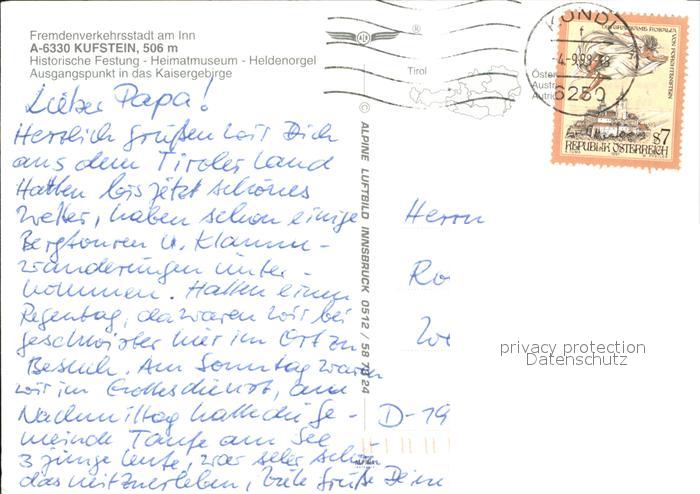 Fremdenverkehrsstadt am Inn
A-6330 KUFSTEIN, 506 m
Historische Festung - Heimatmuseum - Heldenorgel
Ausgangspunkt in das Kaisergebirge
Lieber Papa!
Herzlich grüßen wir Dich
aus dem Tiroler Land
Hatten bis jetzt schönes
Wetter, haben schon einige
Bergtouren u. Klamm-
wanderungen unter-
nommen. Hatten einen
Regentag, da waren wir bei
geschwister hier im Ort zu
Besuch. Am Sonntag waren
wir im Gottesdienst, am
Nachmittag hatte die Ge-
meinde Taufe am See
3 junge Leute, war sehr schön
das mitzuerleben, viele Grüße Dein
© ALPINE LUFTBILD INNSBRUCK 0512 / 58 70 24
Tirol
KUNDL
6250
VON FORCHTENSTEIN
S7
REPUBLIK ÖSTERREICH
Herrn
Ro
We
D-19
privacy protection
Datenschutz